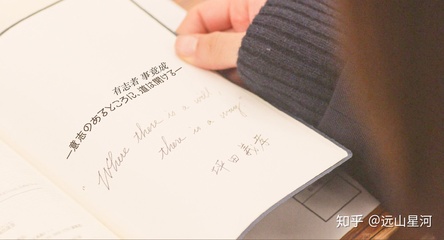 有志者 事竟成
―意志のあるところに、道は開ける―
Where there is a will,
there is a way
坪田
知乎 @远山星河